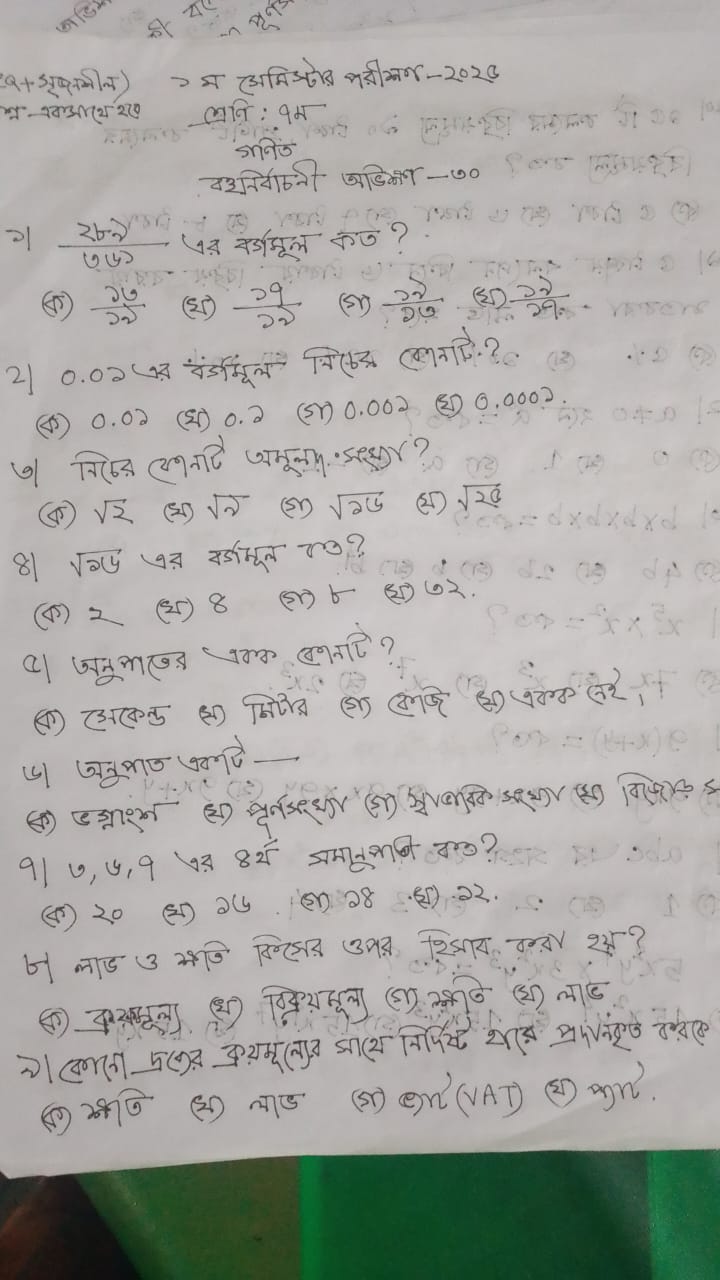 ১ম সেমিস্টার পরীক্ষা-২০২৫
শ্রেণি : ৭ম
গণিত
বহুনির্বাচনী অভিক্ষা-৩০
১| ২৮৯/৩৬১ এর বর্গমূল কত?
(ক) ১৩/১৯ (খ) ১৭/১৯ (গ) ১৯/১৩ (ঘ) ১৯/১৭.
২| 0.0১ এর বর্গমূল নিচের কোনটি?
(ক) 0.0১ (খ) 0.১ (গ) 0.00১ (ঘ) 0.000১.
৩| নিচের কোনটি অমূলদ সংখ্যা?
(ক) √২ (খ) √৯ (গ) √১৬ (ঘ) √২৫
৪| √১৬ এর বর্গমূল কত?
(ক) ২ (খ) ৪ (গ) ৮ (ঘ) ৩২.
৫| অনুপাতের একক কোনটি?
(ক) সেকেন্ড (খ) মিটার (গ) কেজি (ঘ) একক নেই,
৬| অনুপাত একটি —
(ক) ভগ্নাংশ (খ) পূর্ণসংখ্যা (গ) স্বাভাবিক সংখ্যা (ঘ) বিজোড়
৭| ৩, ৬, ৭ এর ৪র্থ সমানুপাতী কত?
(ক) ২০ (খ) ১৬ (গ) ১৪ (ঘ) ১২.
৮| লাভ ও ক্ষতি কিসের ওপর হিসাব করা হয়?
(ক) ক্রয়মূল্য (খ) বিক্রয়মূল্য (গ) ক্ষতি (ঘ) লাভ
৯| কোনো দ্রব্যের ক্রয়মূল্যের সাথে নির্দিষ্ট হারে প্রদানকৃত করকে
(ক) ক্ষতি (খ) লাভ (গ) ভ্যাট (VAT) (ঘ) প্যাট.